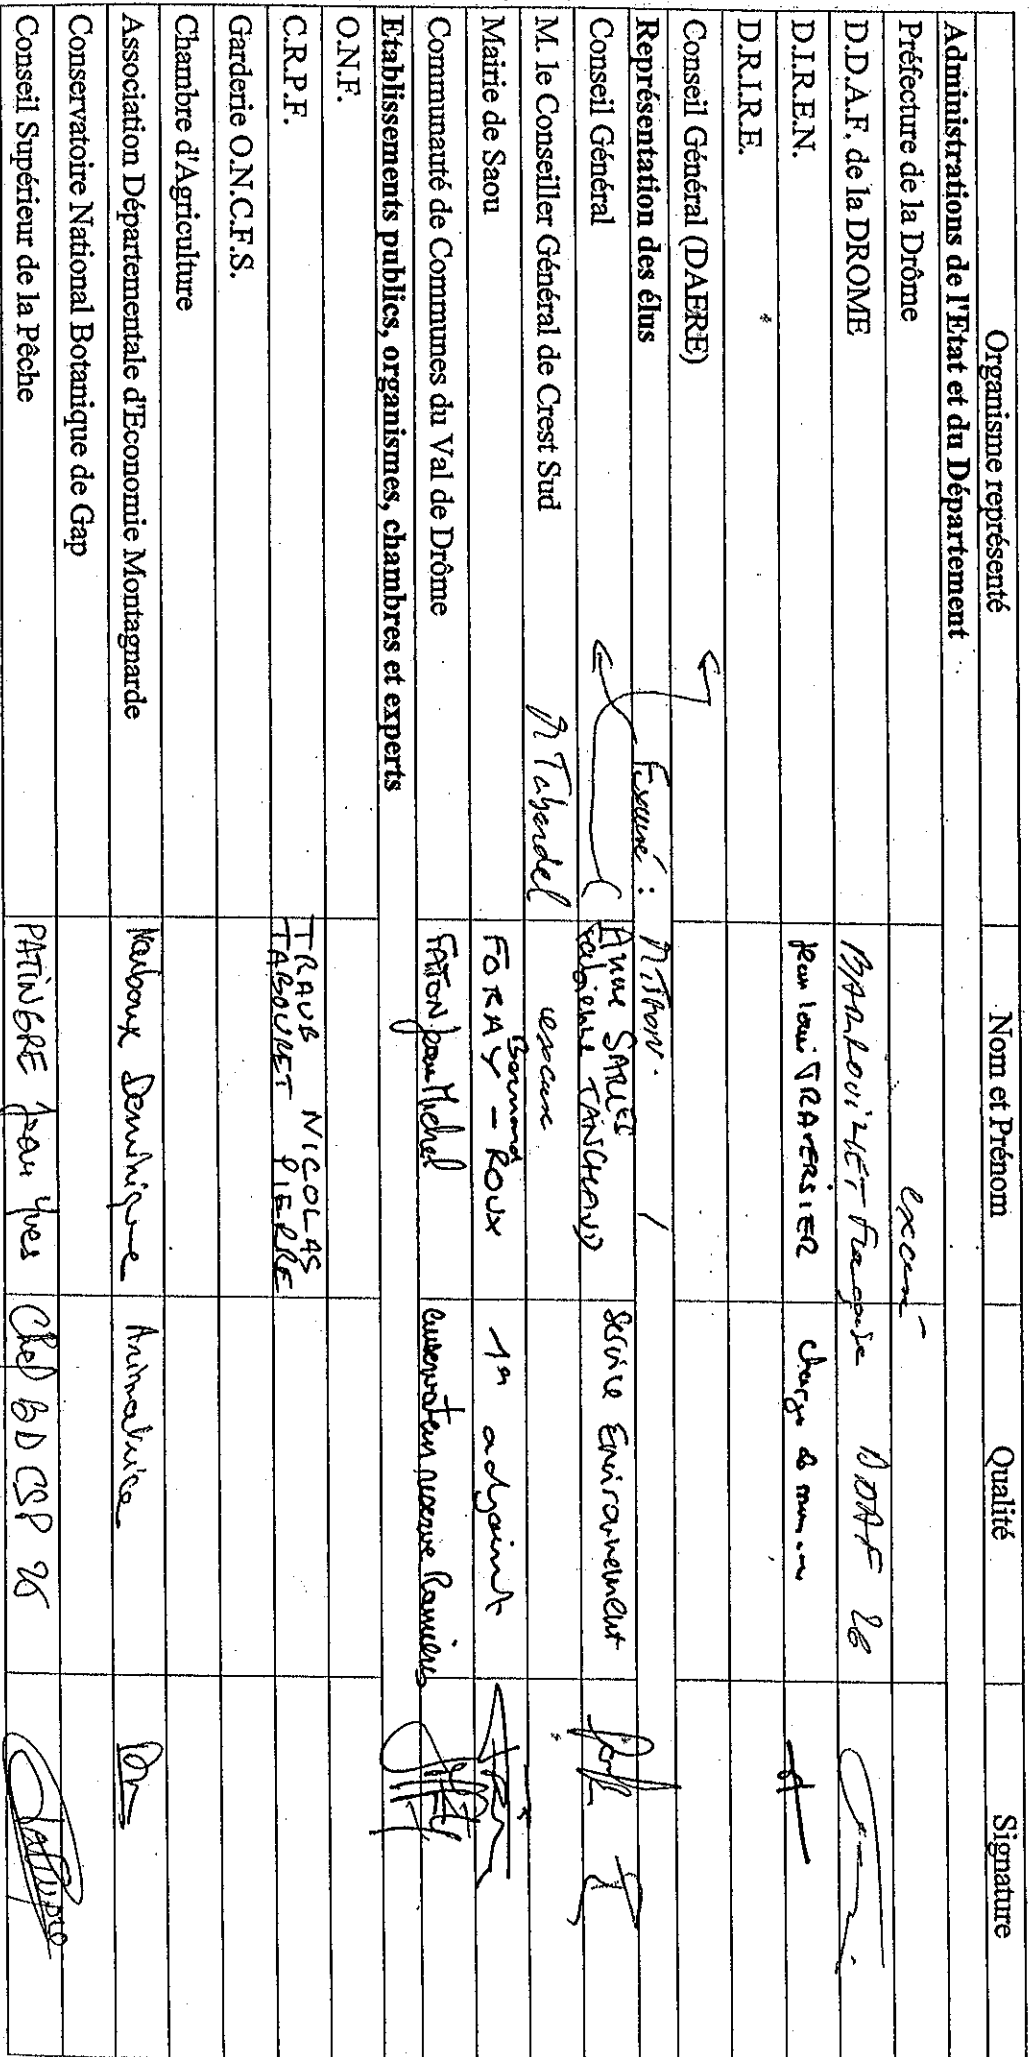 Organisme représenté Nom et Prénom Qualité Signature
Administrations de l'Etat et du Département
Préfecture de la Drôme excusé
D.D.A.F. de la DROME DDAF 26
D.I.R.E.N. Jean Louis TRAVERSIER
D.R.I.R.E.
Conseil Général (DAERE)
Représentation des élus Excusé :
Conseil Général Anne SALLES Service Environnement
Fabienne TANCHAUD
M. le Conseiller Général de Crest Sud M Tabardel excusé
Mairie de Saou FORAY - ROUX Bernard 1er adjoint
Communauté de Communes du Val de Drôme FATON Jean Michel conservateur réserve Ramières
Etablissements publics, organismes, chambres et experts
O.N.F.
C.R.P.F. TRAUB NICOLAS
TABOURET PIERRE
Garderie O.N.C.F.S.
Chambre d'Agriculture
Association Départementale d'Economie Montagnarde Dominique Animatrice
Conservatoire National Botanique de Gap
Conseil Supérieur de la Pêche PATINGRE Jean Yves Chef BD CSP 26